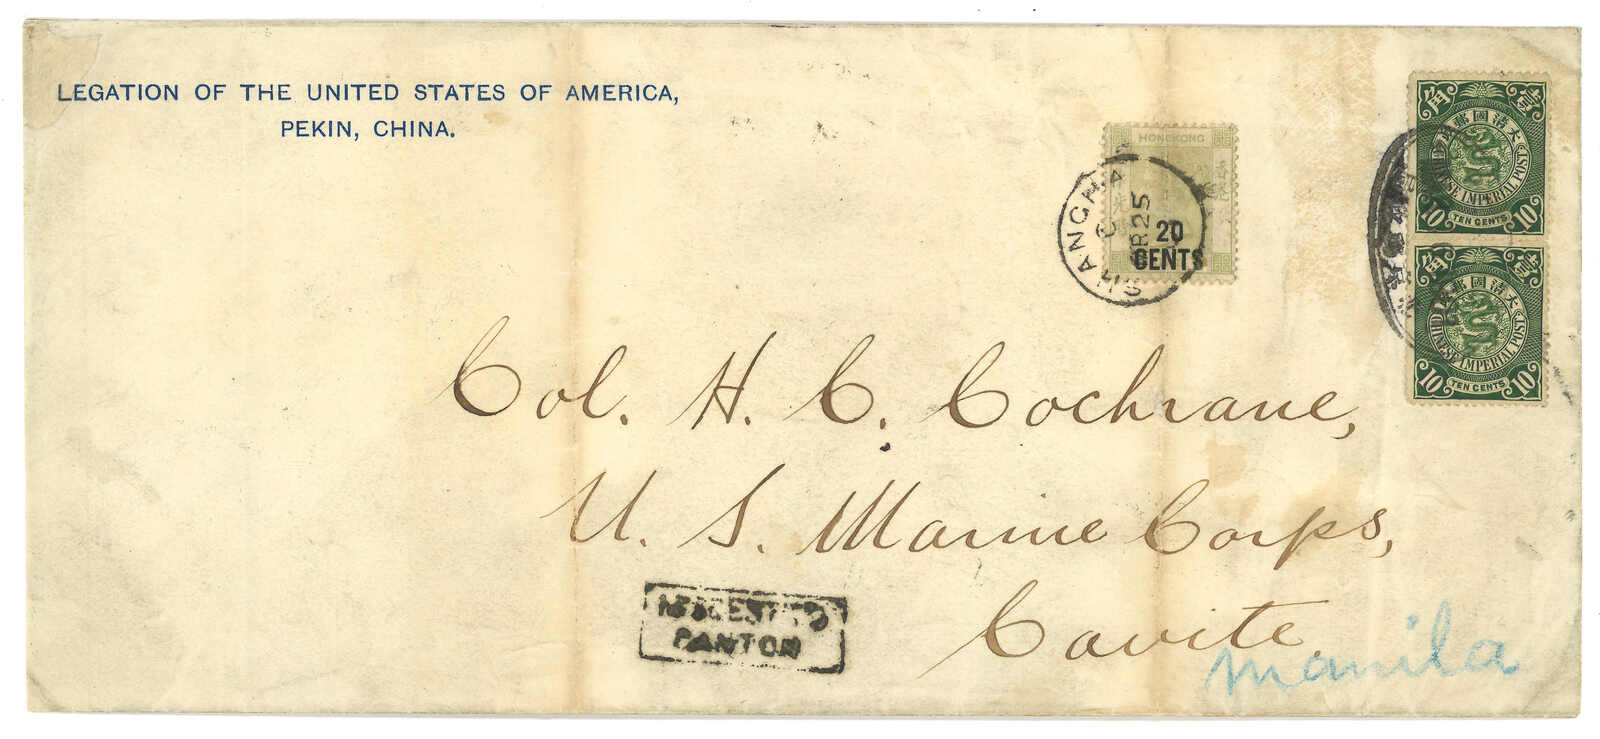 LEGATION OF THE UNITED STATES OF AMERICA,
PEKIN, CHINA.
HONGKONG
20
CENTS
SHANGHA
25
大清國郵政
CHINESE IMPERIAL POST
10 TEN CENTS 10
大清國郵政
CHINESE IMPERIAL POST
10 TEN CENTS 10
Col. H. C. Cochrane,
U. S. Marine Corps,
Cavite.
manila
CANTON